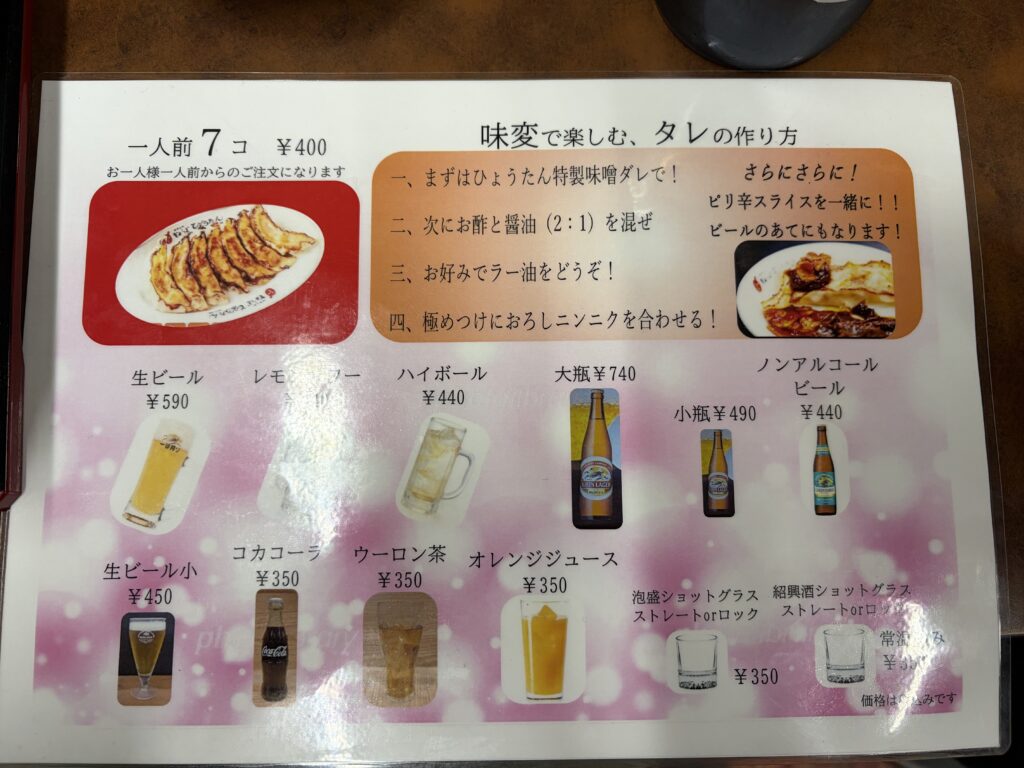 一人前 7 コ ¥400
お一人様一人前からのご注文になります
味変で楽しむ、タレの作り方
一、まずはひょうたん特製味噌ダレで！
二、次にお酢と醤油（2：1）を混ぜ
三、お好みでラー油をどうぞ！
四、極めつけにおろしニンニクを合わせる！
さらにさらに！
ピリ辛スライスを一緒に！！
ビールのあてにもなります！
生ビール
¥590
ハイボール
¥440
大瓶¥740
小瓶¥490
ノンアルコール
ビール
¥440
生ビール小
¥450
コカコーラ
¥350
Coca-Cola
ウーロン茶
¥350
オレンジジュース
¥350
泡盛ショットグラス
ストレートorロック
¥350
紹興酒ショットグラス
ストレートorロック
価格は
です